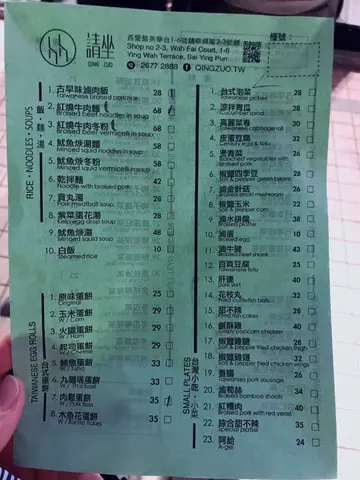 請坐
QING ZUO
Shop no 2-3, Wah Fai Court, 1-6
Ying Wah Terrace, Sai Ying Pun
2677 2888 QINGZUO.TW
檯號:
飯・麵・湯
RICE・NOODLES・SOUPS
1. 古早味滷肉飯 28
Taiwanese braised pork rice
2. 紅燒牛肉麵 68
Braised beef noodles in soup
3. 紅燒牛肉冬粉 68
Braised beef vermicelli in soup
4. 魷魚焿湯麵 58
Minced squid noodles in soup
5. 魷魚焿冬粉 58
Minced squid vermicelli in soup
6. 乾拌麵 42
Noodle with braised pork
7. 貢丸湯 28
Pork meatball soup
8. 紫菜蛋花湯 28
Kelp egg drop soup
9. 魷魚焿湯 48
Minced squid soup
10. 白飯 10
Steamed rice
TAIWANESE EGG ROLLS
台式蛋餅
1. 原味蛋餅 25
Original
2. 玉米蛋餅 29
W / Corn
3. 火腿蛋餅 29
W / Ham
4. 起司蛋餅 29
W / Cheese
5. 鮪魚蛋餅 33
W / Tuna
6. 九層塔蛋餅 33
W / Thai basil
7. 肉鬆蛋餅 35
W / Pork floss
8. 木魚花蛋餅 35
W / Bonito flakes
SMALL PLATES
台灣小吃・小菜
1. 台式泡菜 28
Taiwanese pickles
2. 涼拌青瓜 28
Cucumber salad
3. 高麗菜卷 30
Taiwanese cabbage roll
4. 皮蛋豆腐 32
Century egg & tofu
5. 燙青菜 36
Blanched vegetables with
braised pork
6. 椒鹽四季豆 38
Salt & pepper green beans
7. 滷金針菇 26
Braised enoki mushroom
8. 椒鹽玉米 22
Salt & pepper corn
9. 滷水拼盤 38
Braised platter
10. 滷蛋 10
Braised egg
11. 滷牛腱 43
Braised beef shank
12. 百頁豆腐 25
Taiwanese tofu
13. 肝連 36
Pork skirt
14. 花枝丸 38
Fried cuttlefish balls
15. 甜不辣 35
Fish cakes
16. 鹹酥雞 38
Crispy popcorn chicken
17. 椒鹽雞腿 42
Salt & pepper fried chicken thigh
18. 椒鹽雞翅 32
Salt & pepper fried chicken wings
19. 香腸 26
Taiwanese pork sausage
20. 滷筍絲 34
Braised bamboo shoots
21. 紅糟肉 40
Braised pork with red yeast
22. 綜合甜不辣 35
Special platter
23. 阿給 24
A-gei